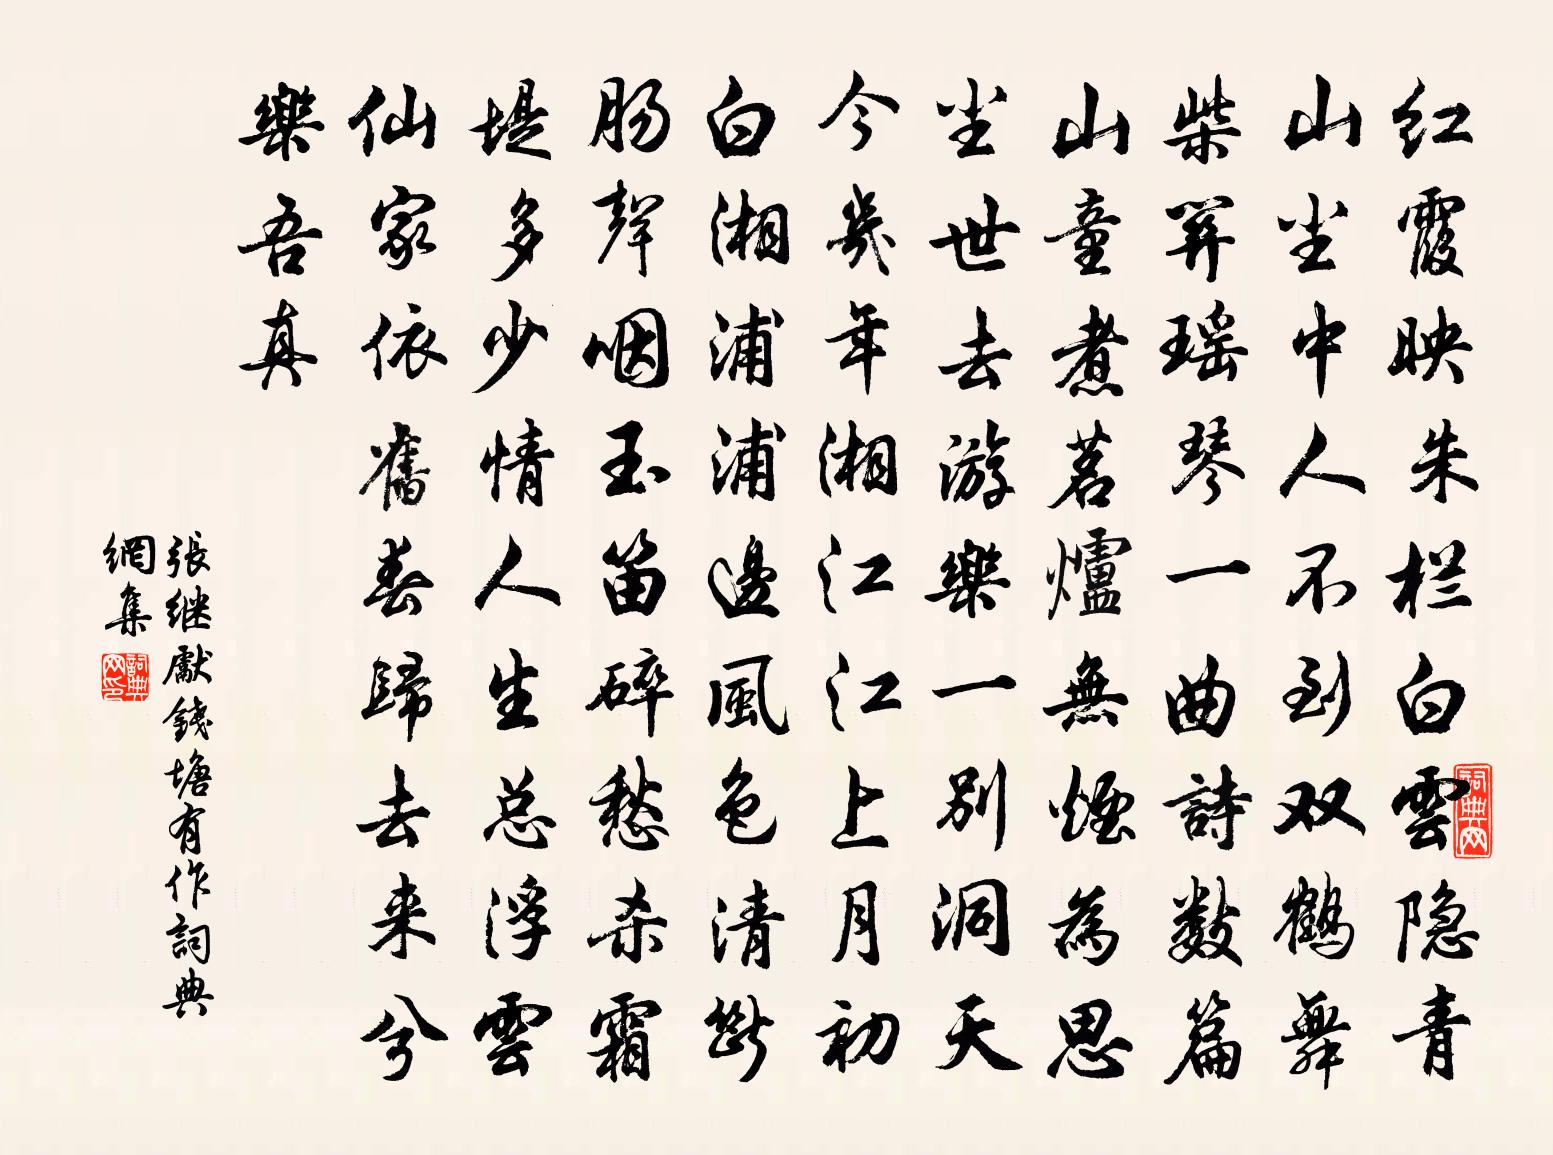 红霞映朱栏白雲隐青
山尘中人不到双鶴舞
柴関瑶琴一曲詩数篇
山童煮茗爐無煙為思
尘世去游樂一别洞天
今幾年湘江江上月初
白湘浦浦邊風色清斷
肠聲咽玉笛碎愁杀霜
堤多少情人生总浮雲
仙家依舊春歸去来兮
樂吾真
張继獻錢塘有作詞典
網集
詞典网
詞典网印